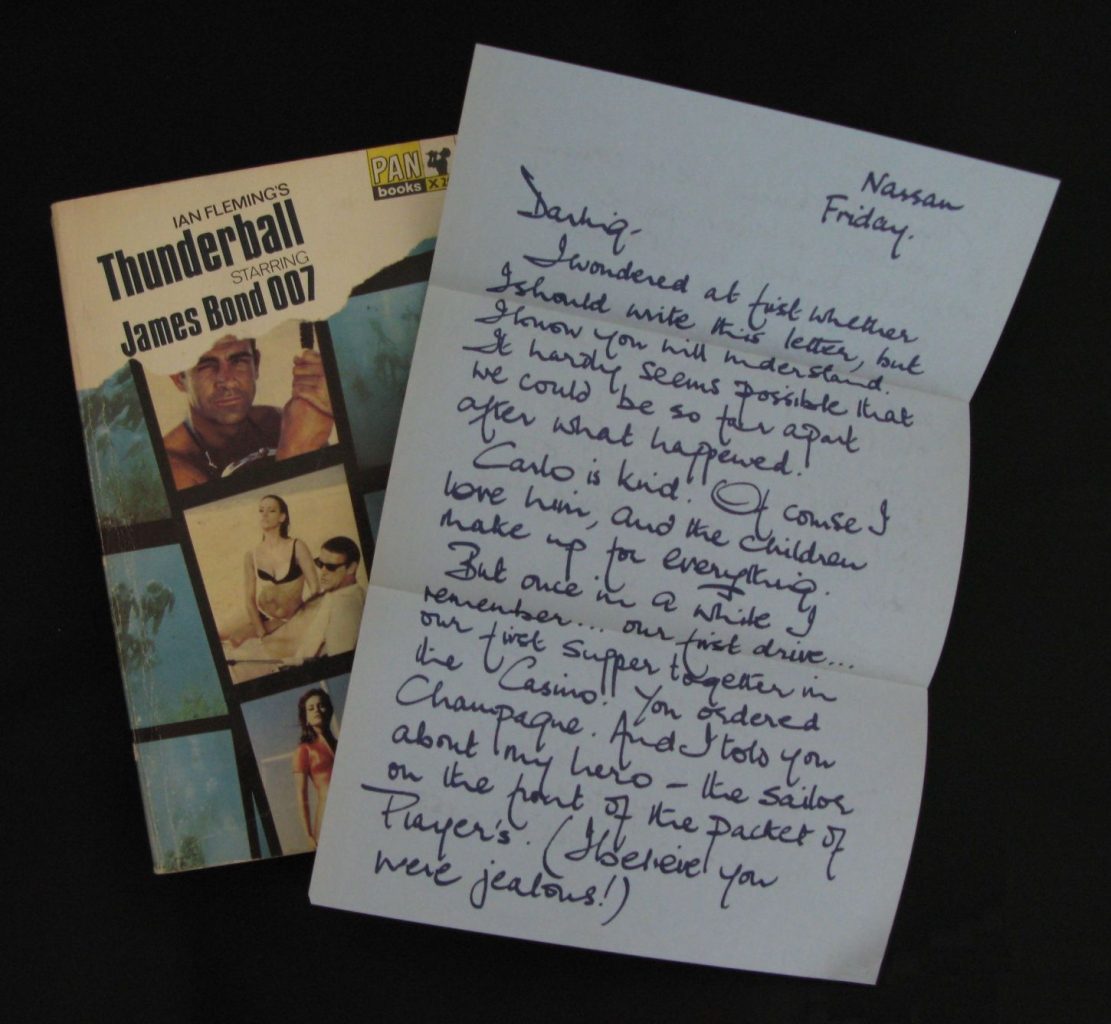 PAN
books X2
IAN FLEMING'S
Thunderball
STARRING
James Bond 007
Nassau
Friday.
Darling-
I wondered at first whether
I should write this letter, but
I know you will understand.
It hardly seems possible that
we could be so far apart
after what happened.
Carlo is kind. Of course I
love him, and the children
make up for everything.
But once in a while I
remember... our first drive...
our first supper together in
the Casino. You ordered
Champagne. And I told you
about my hero - the sailor
on the front of the packet of
Player's. (I believe you
were jealous!)